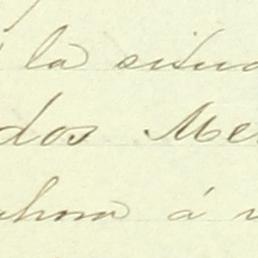 la situa
dos Me
ahora á